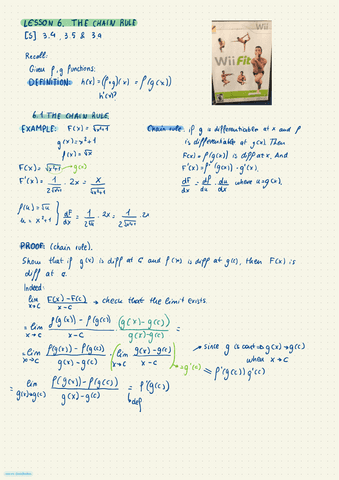 LESSON 6. THE CHAIN RULE
[S] 3.4, 3.5 & 3.9
Wii
Wii Fit
Recall:
Given f, g functions:
DEFINITION: h(x) = (f∘g)(x) = f(g(x))
h'(x)?
6.1 THE CHAIN RULE
EXAMPLE: F(x) = √(x²+1)
g(x) = x²+1
f(x) = √x
F(x) = √(x²+1) → g(x)
F'(x) = 1/(2√(x²+1)) · 2x = x/√(x²+1)
f(u) = √u
u = x²+1
dF/dx = 1/(2√u) · 2x = 1/(2√(x²+1)) · 2x
Chain rule: if g is differentiable at x and f
is differentiable at g(x). Then
F(x) = f(g(x)) is diff at x. And
F'(x) = f'(g(x)) · g'(x).
dF/dx = df/du · du/dx where u = g(x).
PROOF: (chain rule).
Show that if g(x) is diff at c and f(x) is diff at g(c), then F(x) is
diff at c.
Indeed:
lim x→c (F(x) - F(c))/(x - c) → check that the limit exists.
= lim x→c (f(g(x)) - f(g(c)))/(x - c) · (g(x) - g(c))/(g(x) - g(c)) =
= lim x→c (f(g(x)) - f(g(c)))/(g(x) - g(c)) · lim x→c (g(x) - g(c))/(x - c) = g'(c)
→ since g is cont => g(x) → g(c)
when x → c
= f'(g(c)) g'(c)
= lim g(x)→g(c) (f(g(x)) - f(g(c)))/(g(x) - g(c)) = f'(g(c))
↳ def